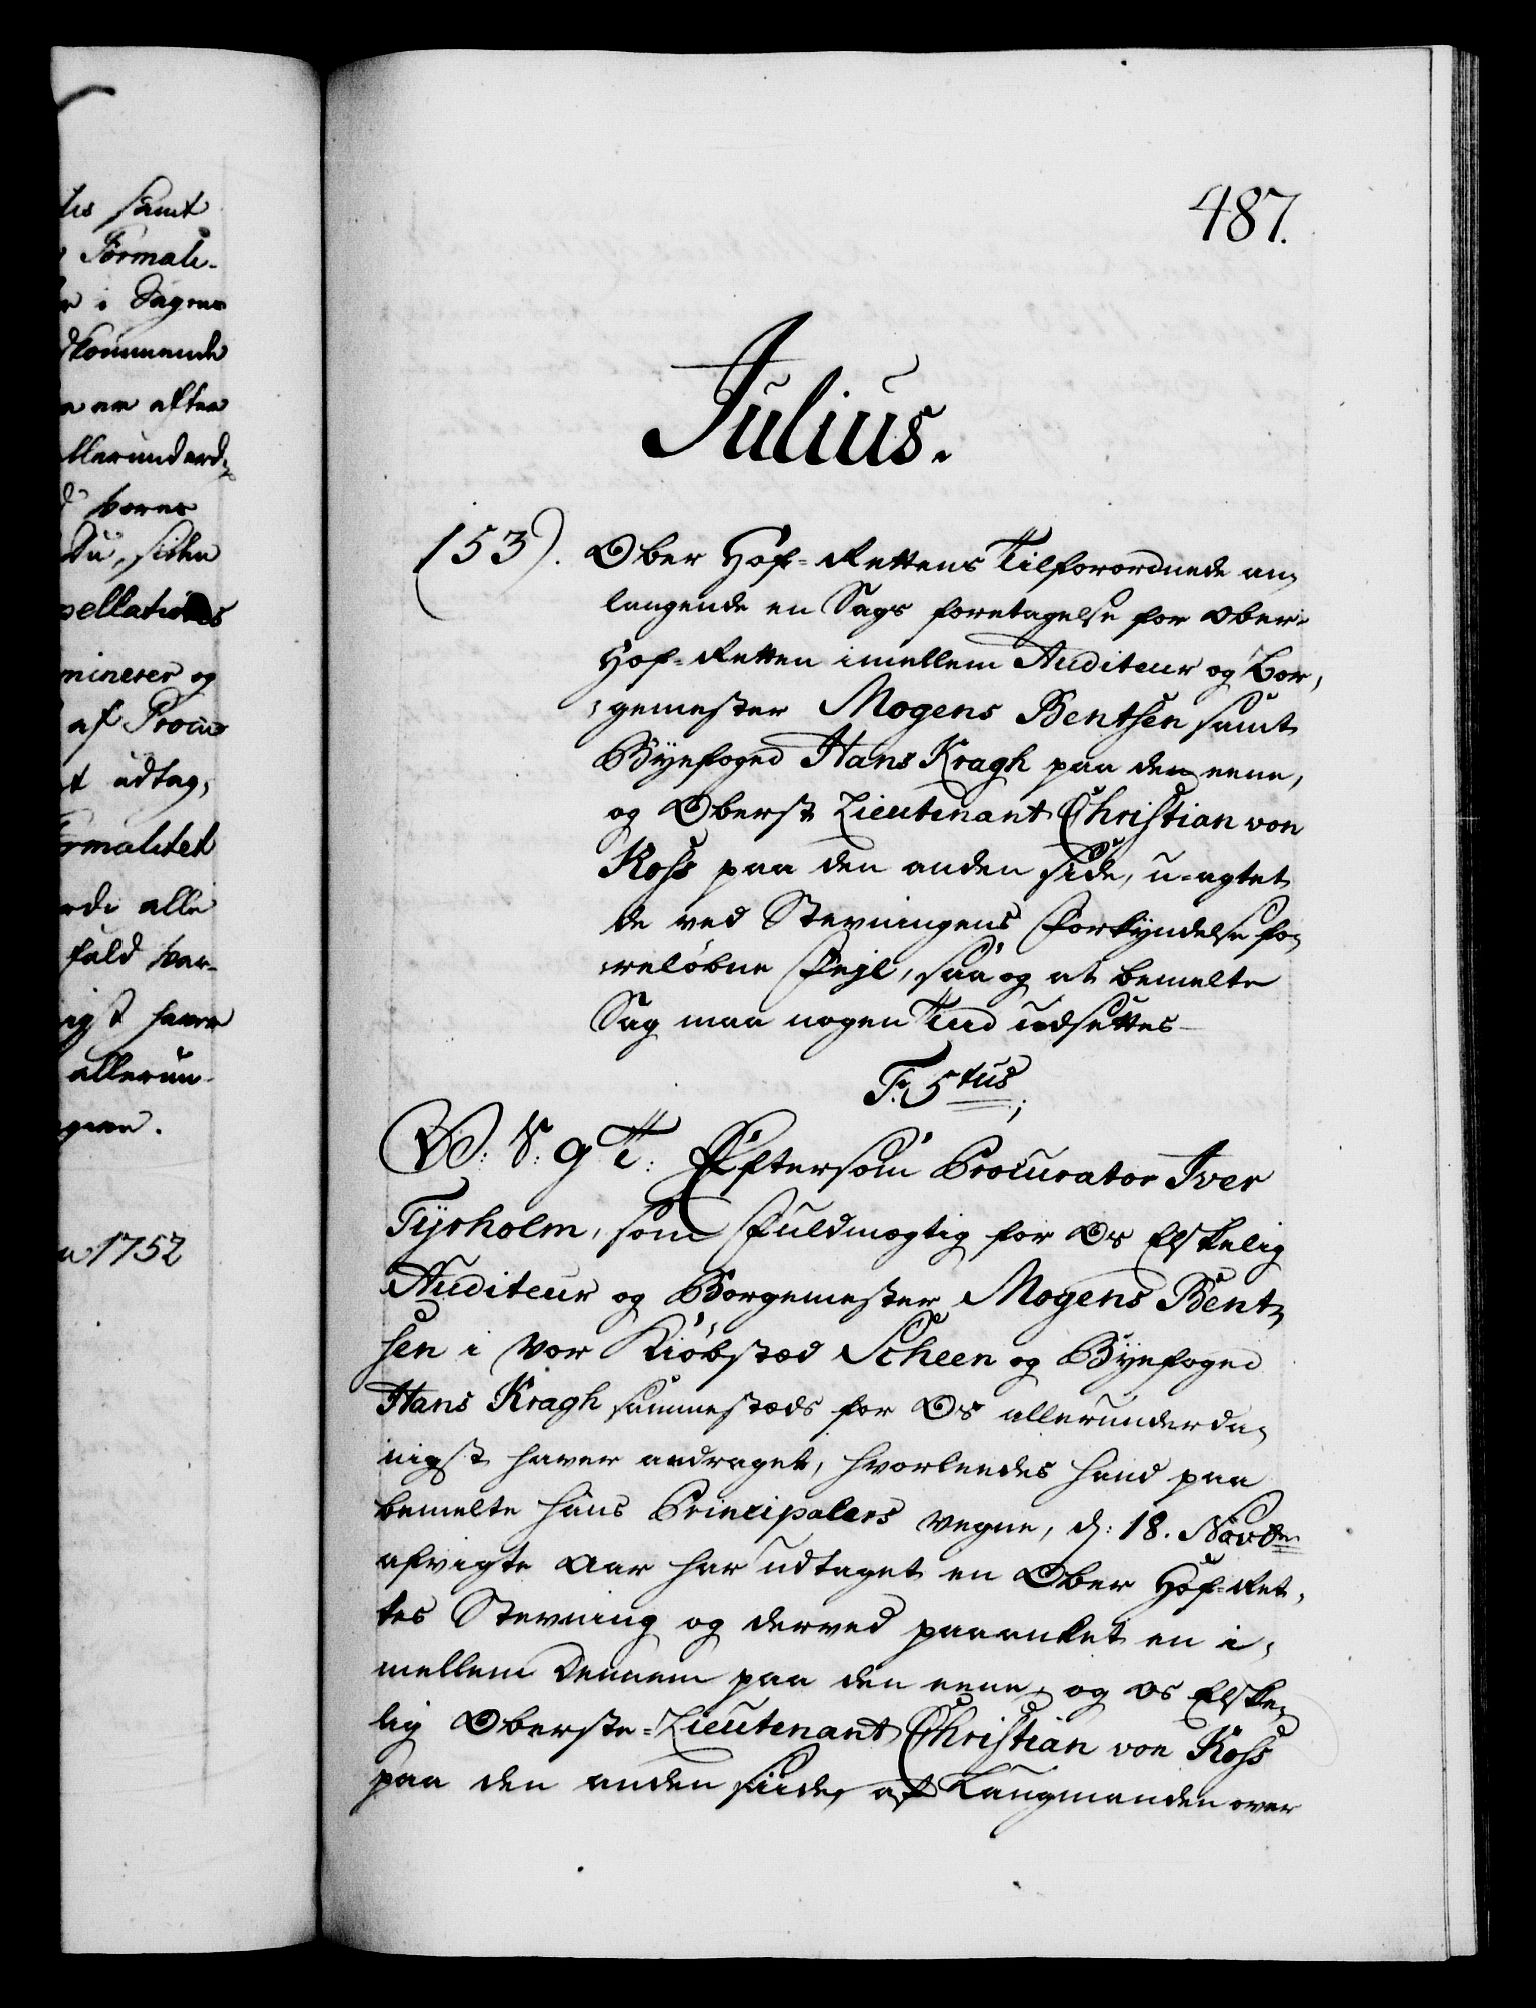 tes samt
Formali-
r i Sagens
dkommende
a en efter
allerunderd,
d vores
Du, siden
pellations
minerer og
af Procu
t udtag,
ormalitet
rdi alle
fald var-
igst haver
allerun-
given.
a 1752
487.
Julius.
153). Ober Hof-Rettens Tilforordnede an,
langende en Sags foretagelse for Ober-
Hof-Retten imellem Auditeur og Bor,
gemester Mogens Bentsen samt
Byefoged Hans Kragh paa den eene,
og Oberst Lieutenant Christian von
Koss paa den anden side, u-agtet
de ved Stevningens Forkyndelse fo,
reløbne Fejl, saa og at bemelte
Sag maa nogen Tiid udsettes-
F. 5tus;
W: V: G T: Eftersom Procurator Iver
Tyrholm, som Fuldmægtig for Os Elskelig
Auditeur og Borgemester Mogens Bent,
sen i vor Kiøbstæd Scheen og Byefoged
Hans Kragh sammestæds for Os allerunderda,
nigst haver andraget, hvorleedes hand paa
bemelte hans Principalers vegne, d: 18. Novbr
afvigte Aar har udtaget en Ober Hof-Ret,
tes Stevning og derved paaanket en i,
mellem dennem paa den eene, og os Elske,
lig Oberste-Lieutenant Christian von Koss
paa den anden siide, af Laugmanden over